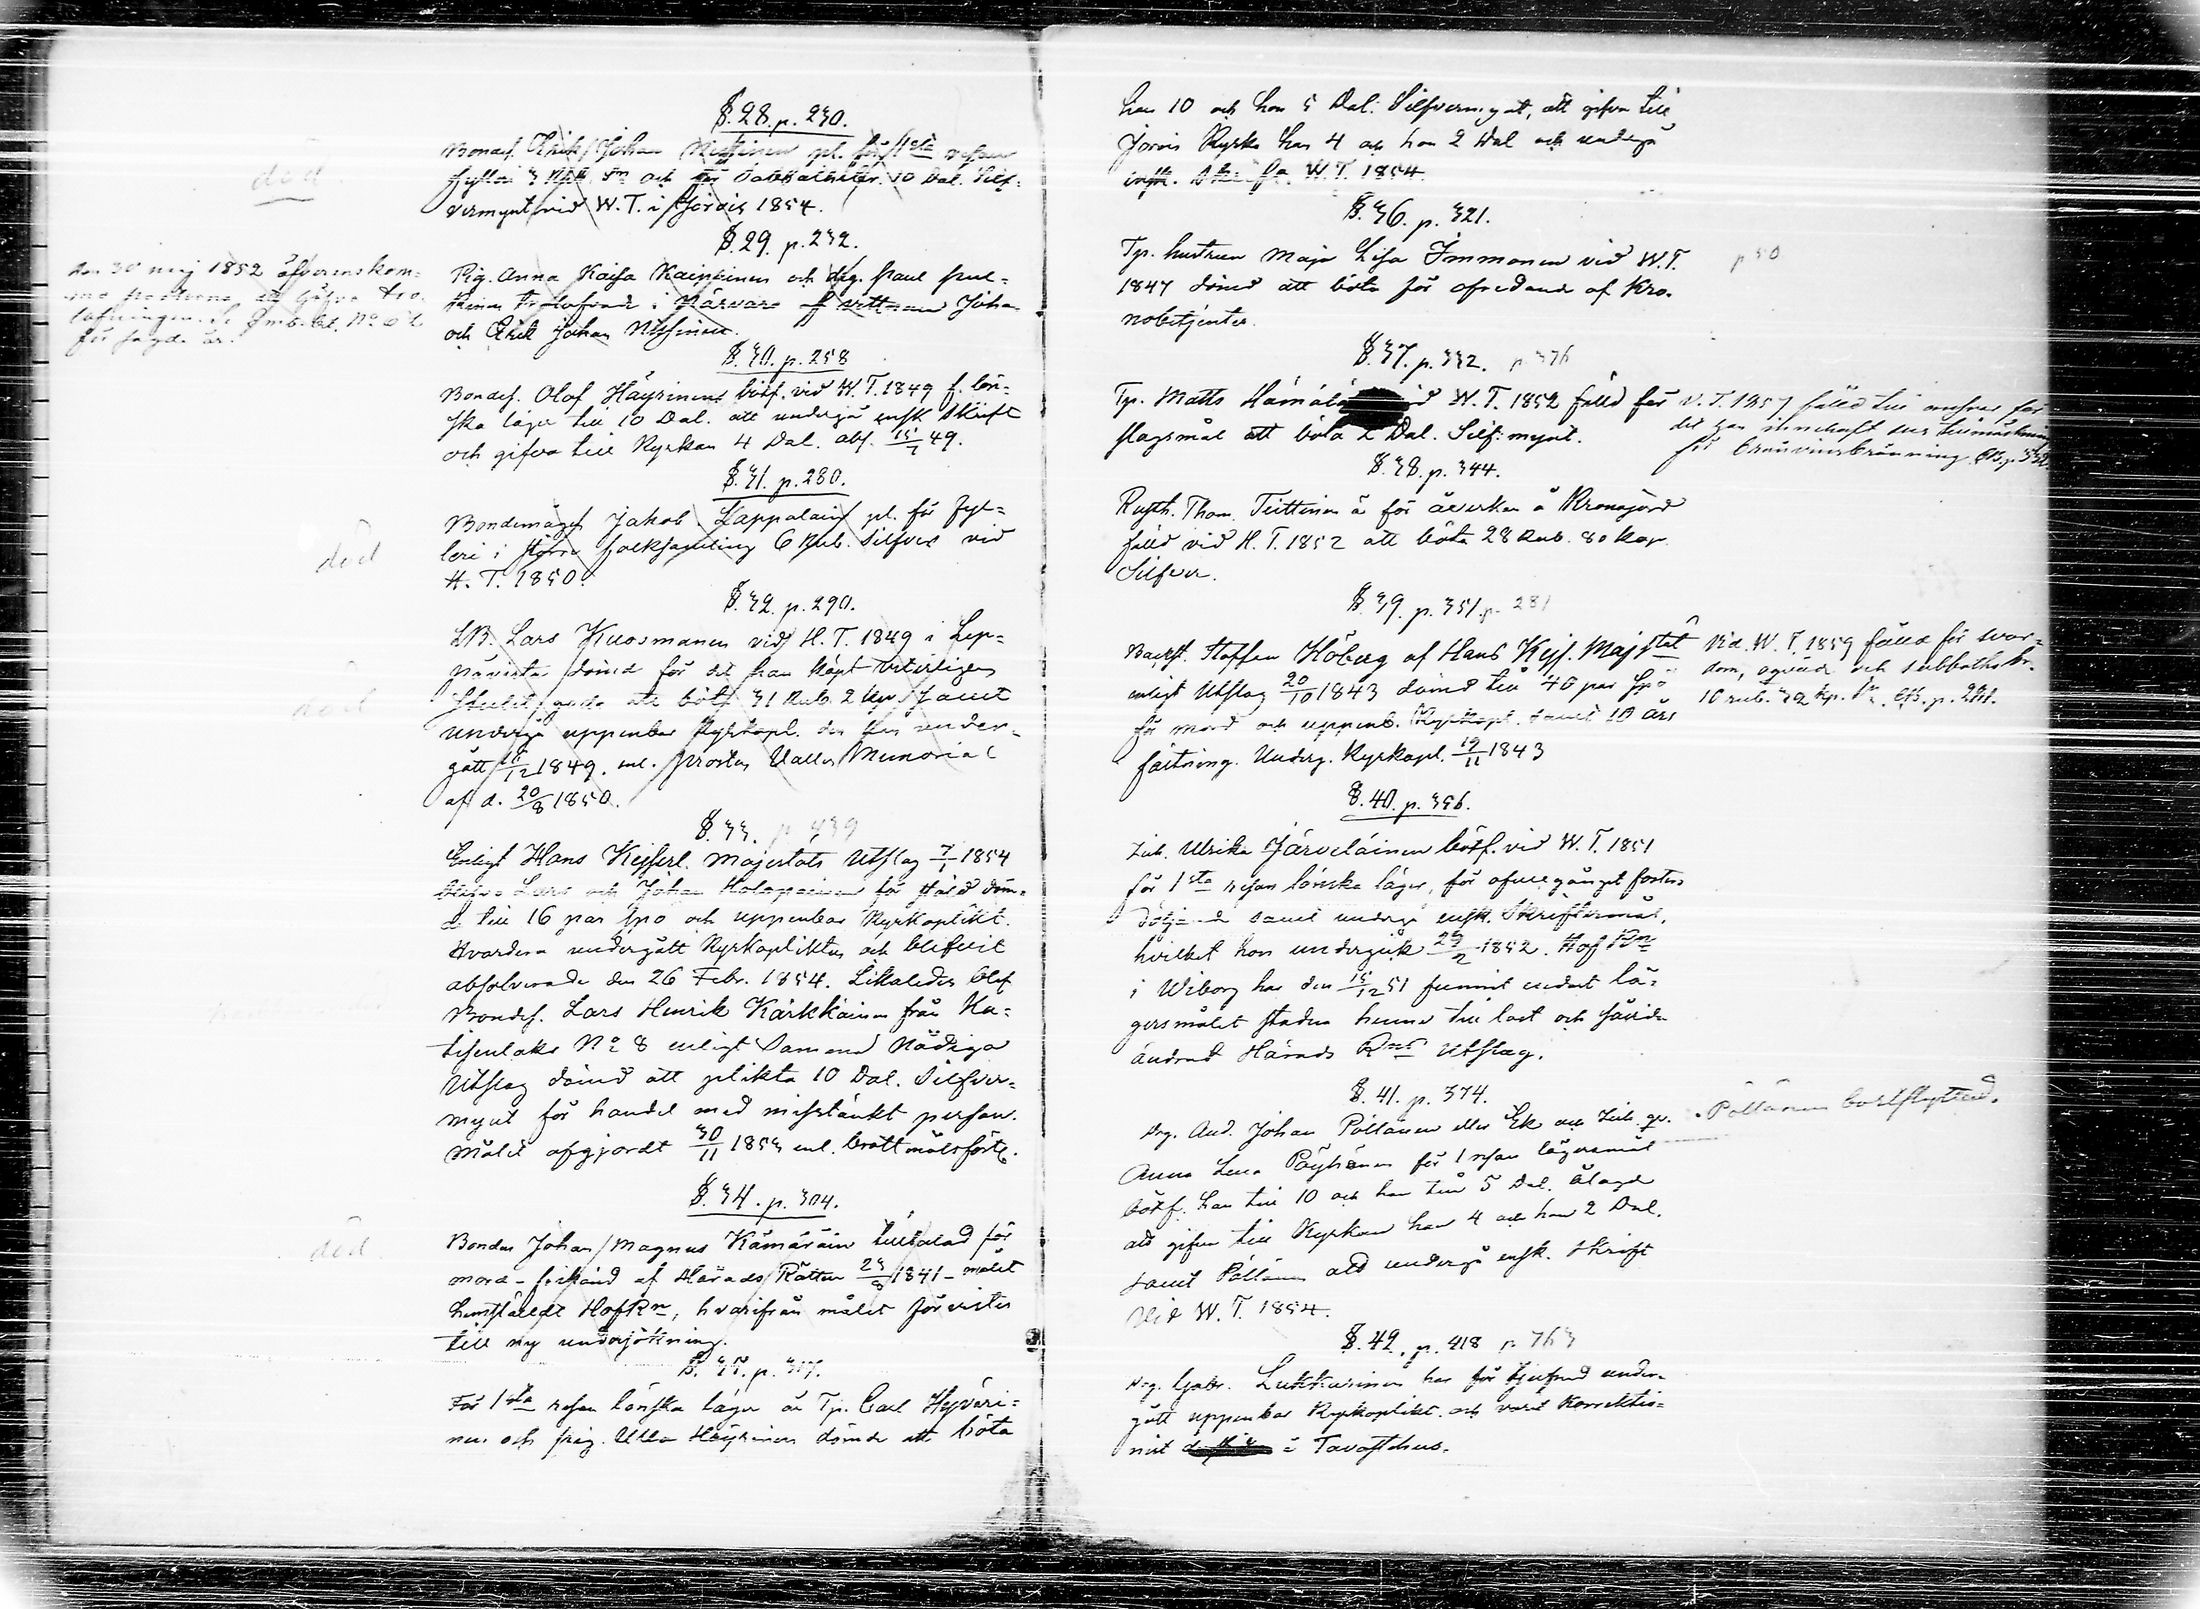 §.28. p. 230.
död
Bondes. Erik Johan Nissinen pl. för 1sta resan
fylleri 3 Rub. Sr och för Sabbathsbr. 10 Dal. Silf=
vermynt vid W.T. i Jorois 1854.
§.29. p. 232.
den 30 maj 1852 öfverenskom=
för sagde år.
Pig. Anna Kaisa Kaipainen och drg. Paul Pul=
kinen trolofvade i närvaro af vittnena Johan
och Erik Johan Nissinen.
§.30. p. 258
Bondes. Olof Häyrinens bötf. vid W.T. 1849 f. lön=
ska läger till 10 Dal. att undergå ensk. skrift
och gifva till Kyrkan 4 Dal. abs. 15/7 49.
§.31. p. 280.
död
Bondemågen Jakob Lappalain pl. för fyl=
leri i större folksamling 6 Rub. Silfver vid
H.T. 1850.
§.32. p. 290.
död
LB. Lars Kuosmanen vid H.T. 1849 i Lep=
pävirta dömd för det han köpt
stulit gods att böta 31 Rub. 2 kop. samt
undergå uppenbar Kyrkopl. den han under=
gått 1849. enl. Prosten Memorial
af d. 20/8 1850.
§.33. p 439
Enligt Hans Kejserl. Majestäts Utslag 7/1 1854
blefvo Lars och Johan Holopainen för stöld döm=
de till 16 par spö och uppenbar Kyrkoplikt.
Hvardera undergått Kyrkoplikten och blefvit
absolverade den 26 Febr. 1854. Likaledes blef
Bondes. Lars Henrik Kärkkäinen från Ku=
N:o 8 enligt samma Nådiga
Utslag dömd att plikta 10 Dal. Silfver=
mynt för handel med misstänkt person.
Målet afgjordt 30/11 1853 enl. brottmålsförtk.
§.34. p. 304.
död
Bonden Johan Magnus Kämäräin tilltalad för
mord - frikänd af Härads Rätten 23/8 1841 - målet
hemstäldt HofRn, hvarifrån målet förvistes
till ny undersökning.
§.35. p. 317.
För 1sta resan lönska läger är Tp. Carl Hyväri=
nen och pig. Ulla Häyrinen dömde att böta
han 10 och hon 5 Dal. Silfvermynt, att gifva till
Jorois Kyrka han 4 och hon 2 Dal och undergå
ensk. W.T. 1854.
§.36. p. 321.
Tp. hustrun Maja Lisa Immonen vid W.T.
1847 dömd att böta för ofredande af Kro=
nobetjenter.
p 50
§.37. p. 332. p 376
Tp. Matts vid W.T. 1852 fälld för
slagsmål att böta 2 Dal. Silf: mynt.
V. T. 1857 fälld till ansvar för
det han innehaft
för bränvinsbränning
§.38. p. 344.
Ryth. Thom. Teittinen är för åverkan å Kronojord
fälld vid H.T. 1852 att böta 28 Rub. 80 kop
Silfver.
§.39. p. 351. p. 281
Backst. Staffan Höberg af Hans Kejs. Majstät
enligt Utslag 20/10 1843 dömd till 40 par spö
för mord och uppenb. Kyrkopl. samt 10 års
fästning. Underg. Kyrkopl. 19/11 1843
Vid W.T. 1859 fälld för svor=
dom, oqväd. och sabbathsbr.
10 rub. 32 kp. Sr.
§.40. p. 356.
Ink. Ulrika Järveläinen bötf. vid W.T. 1851
för 1sta resan lönska läger, för ofullgånget fosters
döljande samt undergå ensk. Skriftermål,
hvilket hon undergick 29/2 1852. Hof Rn
i Wiborg har den 15/12 51 funnit endast lä=
gersmålet stadna henne till last och såvida
ändrat Härads Rns Utslag.
§.41. p. 374.
Drg. And. Johan Pöllänen eller Ek och Ink. qv.
Anna Lena Pöyhönen för 1 resan lägersmål
bötf. han till 10 och hon till 5 Dal. ålagde
att gifva till Kyrkan han 4 och hon 2 Dal.
samt Pöllänen att undergå ensk. skrift
vid W.T. 1854.
Pöllänen bortflyttad.
§.42. p. 418 p 763
Drg. Gabr. Lukkarinen har för tjufnad under=
gått uppenbar Kyrkoplikt. och varit korrektio=
nist i Tavastehus.